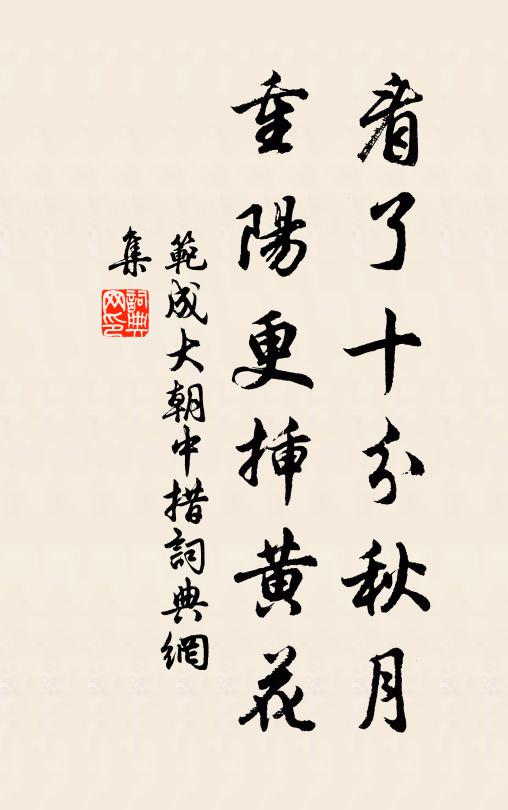 看了十分秋月
重陽更挿黄花
範成大朝中措詞典網
集
詞典
网印